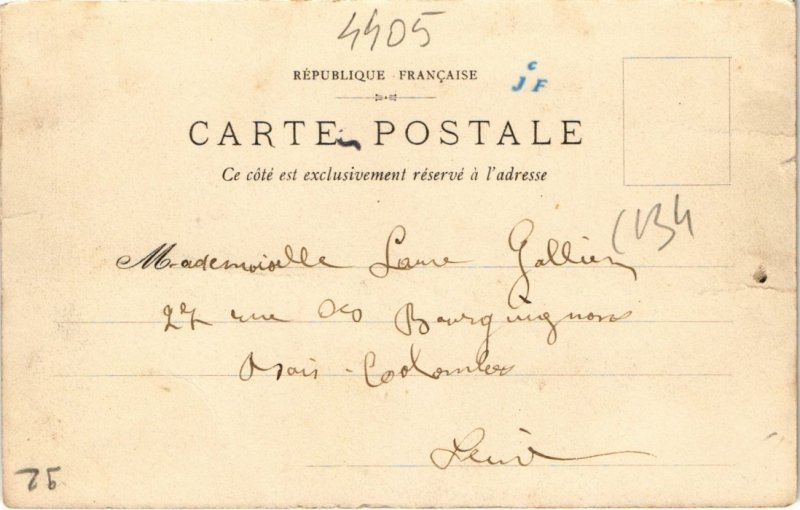 4405
RÉPUBLIQUE FRANÇAISE
C
JF
CARTE POSTALE
Ce côté est exclusivement réservé à l'adresse
Mademoiselle Laure Gallien
27 rue des Bourguignons
Bois-Colombes
Seine
75